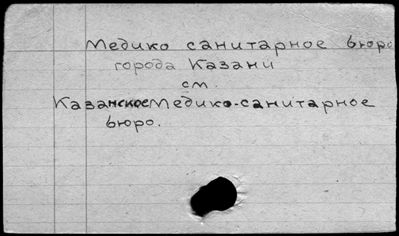 Медико санитарное бюро
города Казани
см.
Казанское Медико-санитарное
бюро.